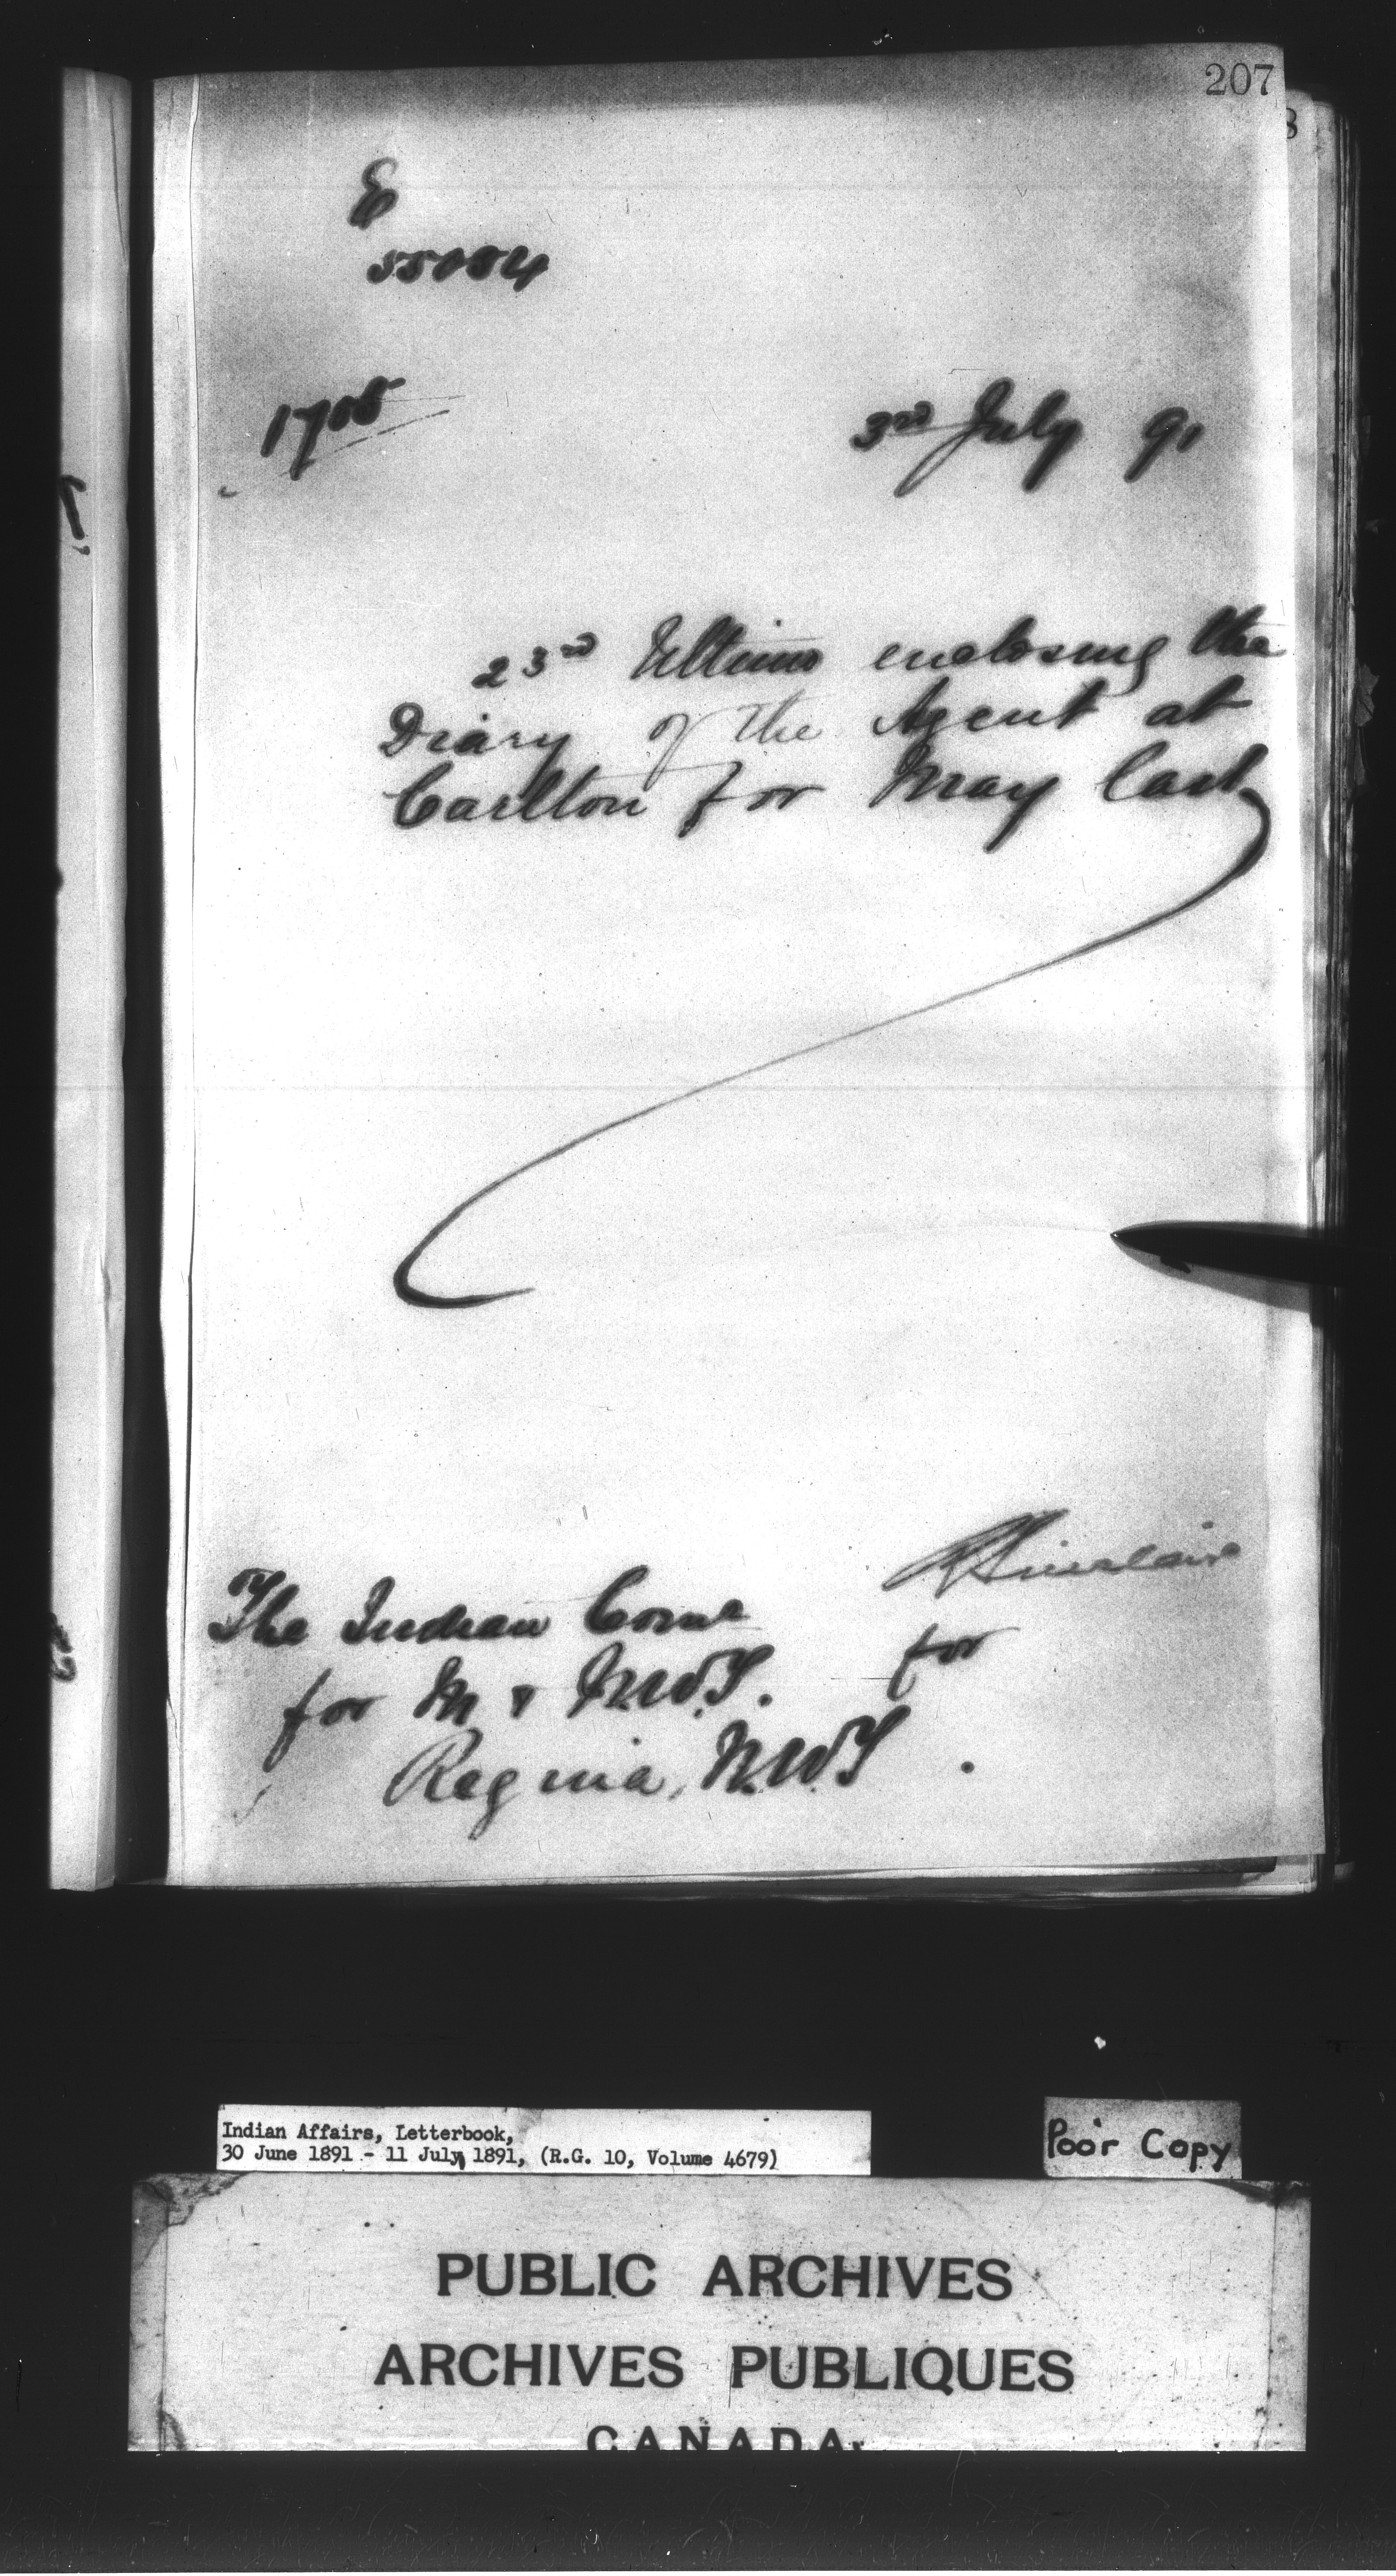 207
E
55084
1708
3rd July 91
23rd Ultimo enclosing the
Diary of the Agent at
Carlton for May last,
Sinclair
The Indian Comr
for
for M & N.W.T.
Regina, N.W.T.
Indian Affairs, Letterbook,
30 June 1891 - 11 July 1891, (R.G. 10, Volume 4679)
Poor Copy
PUBLIC ARCHIVES
ARCHIVES PUBLIQUES
CANADA